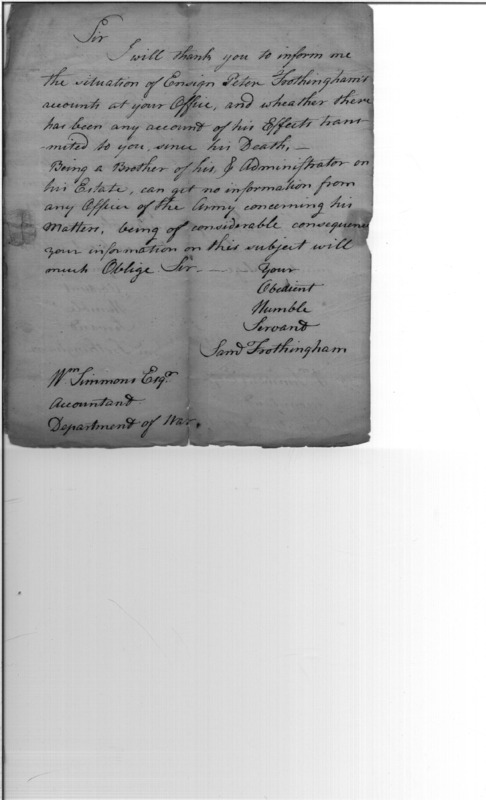 Sir
I will thank you to inform me
the situation of Ensign Peter Frothingham's
accounts at your Office, and wheather there
has been any account of his Effects trans-
mited to you, since his Death, —
Being a Brother of his, & Administrator on
his Estate, can get no information from
any Officer of the Army concerning his
Matters, being of considerable consequence
your information on this subject will
much Oblige Sir — Your
Obedient
Humble
Servand
Saml Frothingham
Wm Simmons Esqr
Accountand
Department of War.